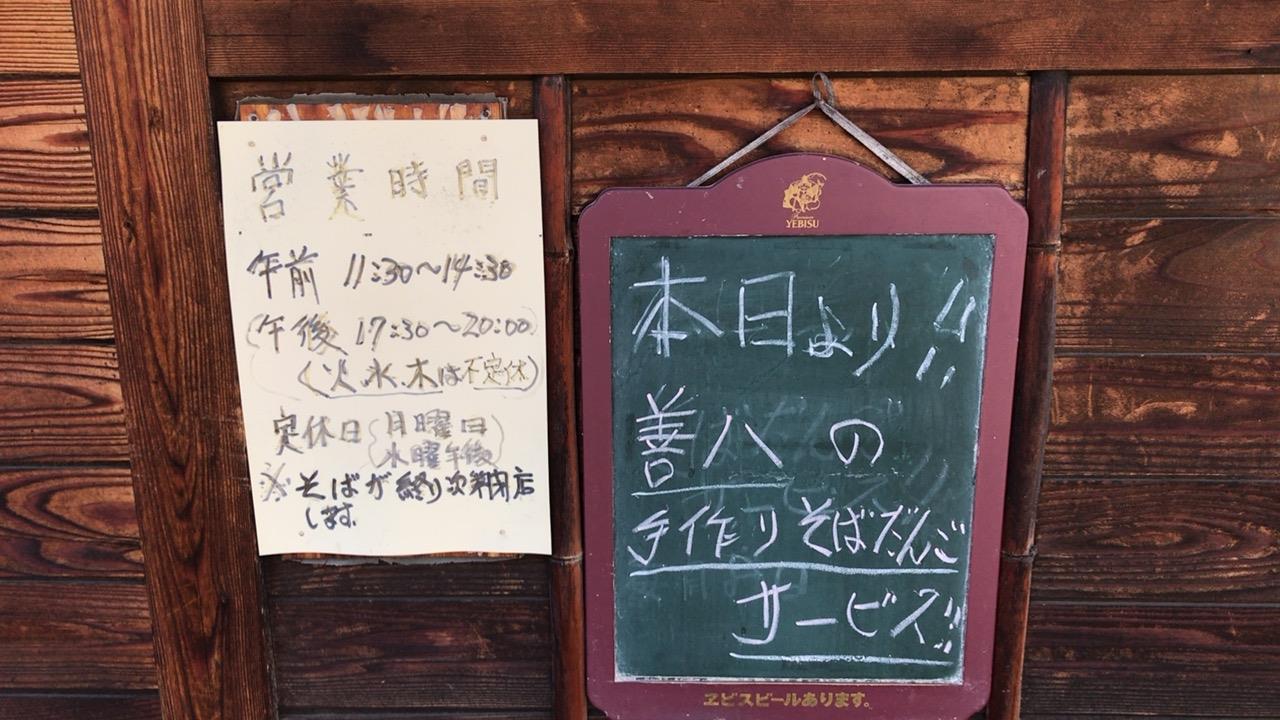 営業時間
午前 11:30〜14:30
(午後 17:30〜20:00)
(火、水、木は不定休)
定休日(月曜日
水曜午後)
※そばが終り次第閉店
します。
Premium
YEBISU
本日より!!
善八の
手作りそばだんご
サービス!!
ヱビスビールあります。